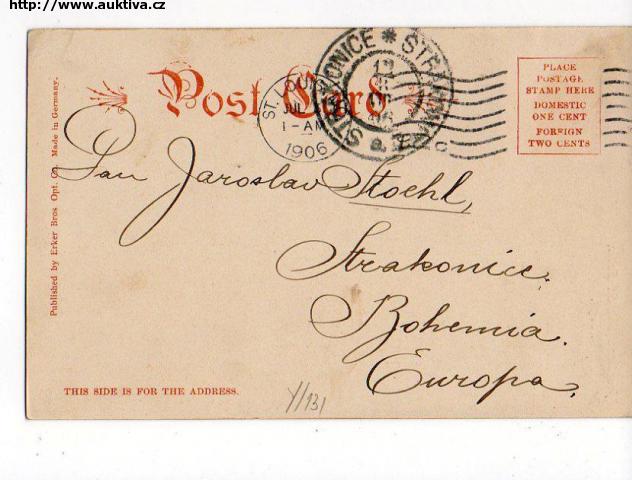 http://www.auktiva.cz
Post Card
ST. LOUIS
JUL
1-AM
1906
STRAKONICE * STRAKONICE
PLACE
POSTAGE
STAMP HERE
DOMESTIC
ONE CENT
FOREIGN
TWO CENTS
Published by Erker Bros Opt. Co. Made in Germany.
Pan Jaroslav Stoehl,
Strakonice.
Bohemia.
Europa.
THIS SIDE IS FOR THE ADDRESS.
Y/131